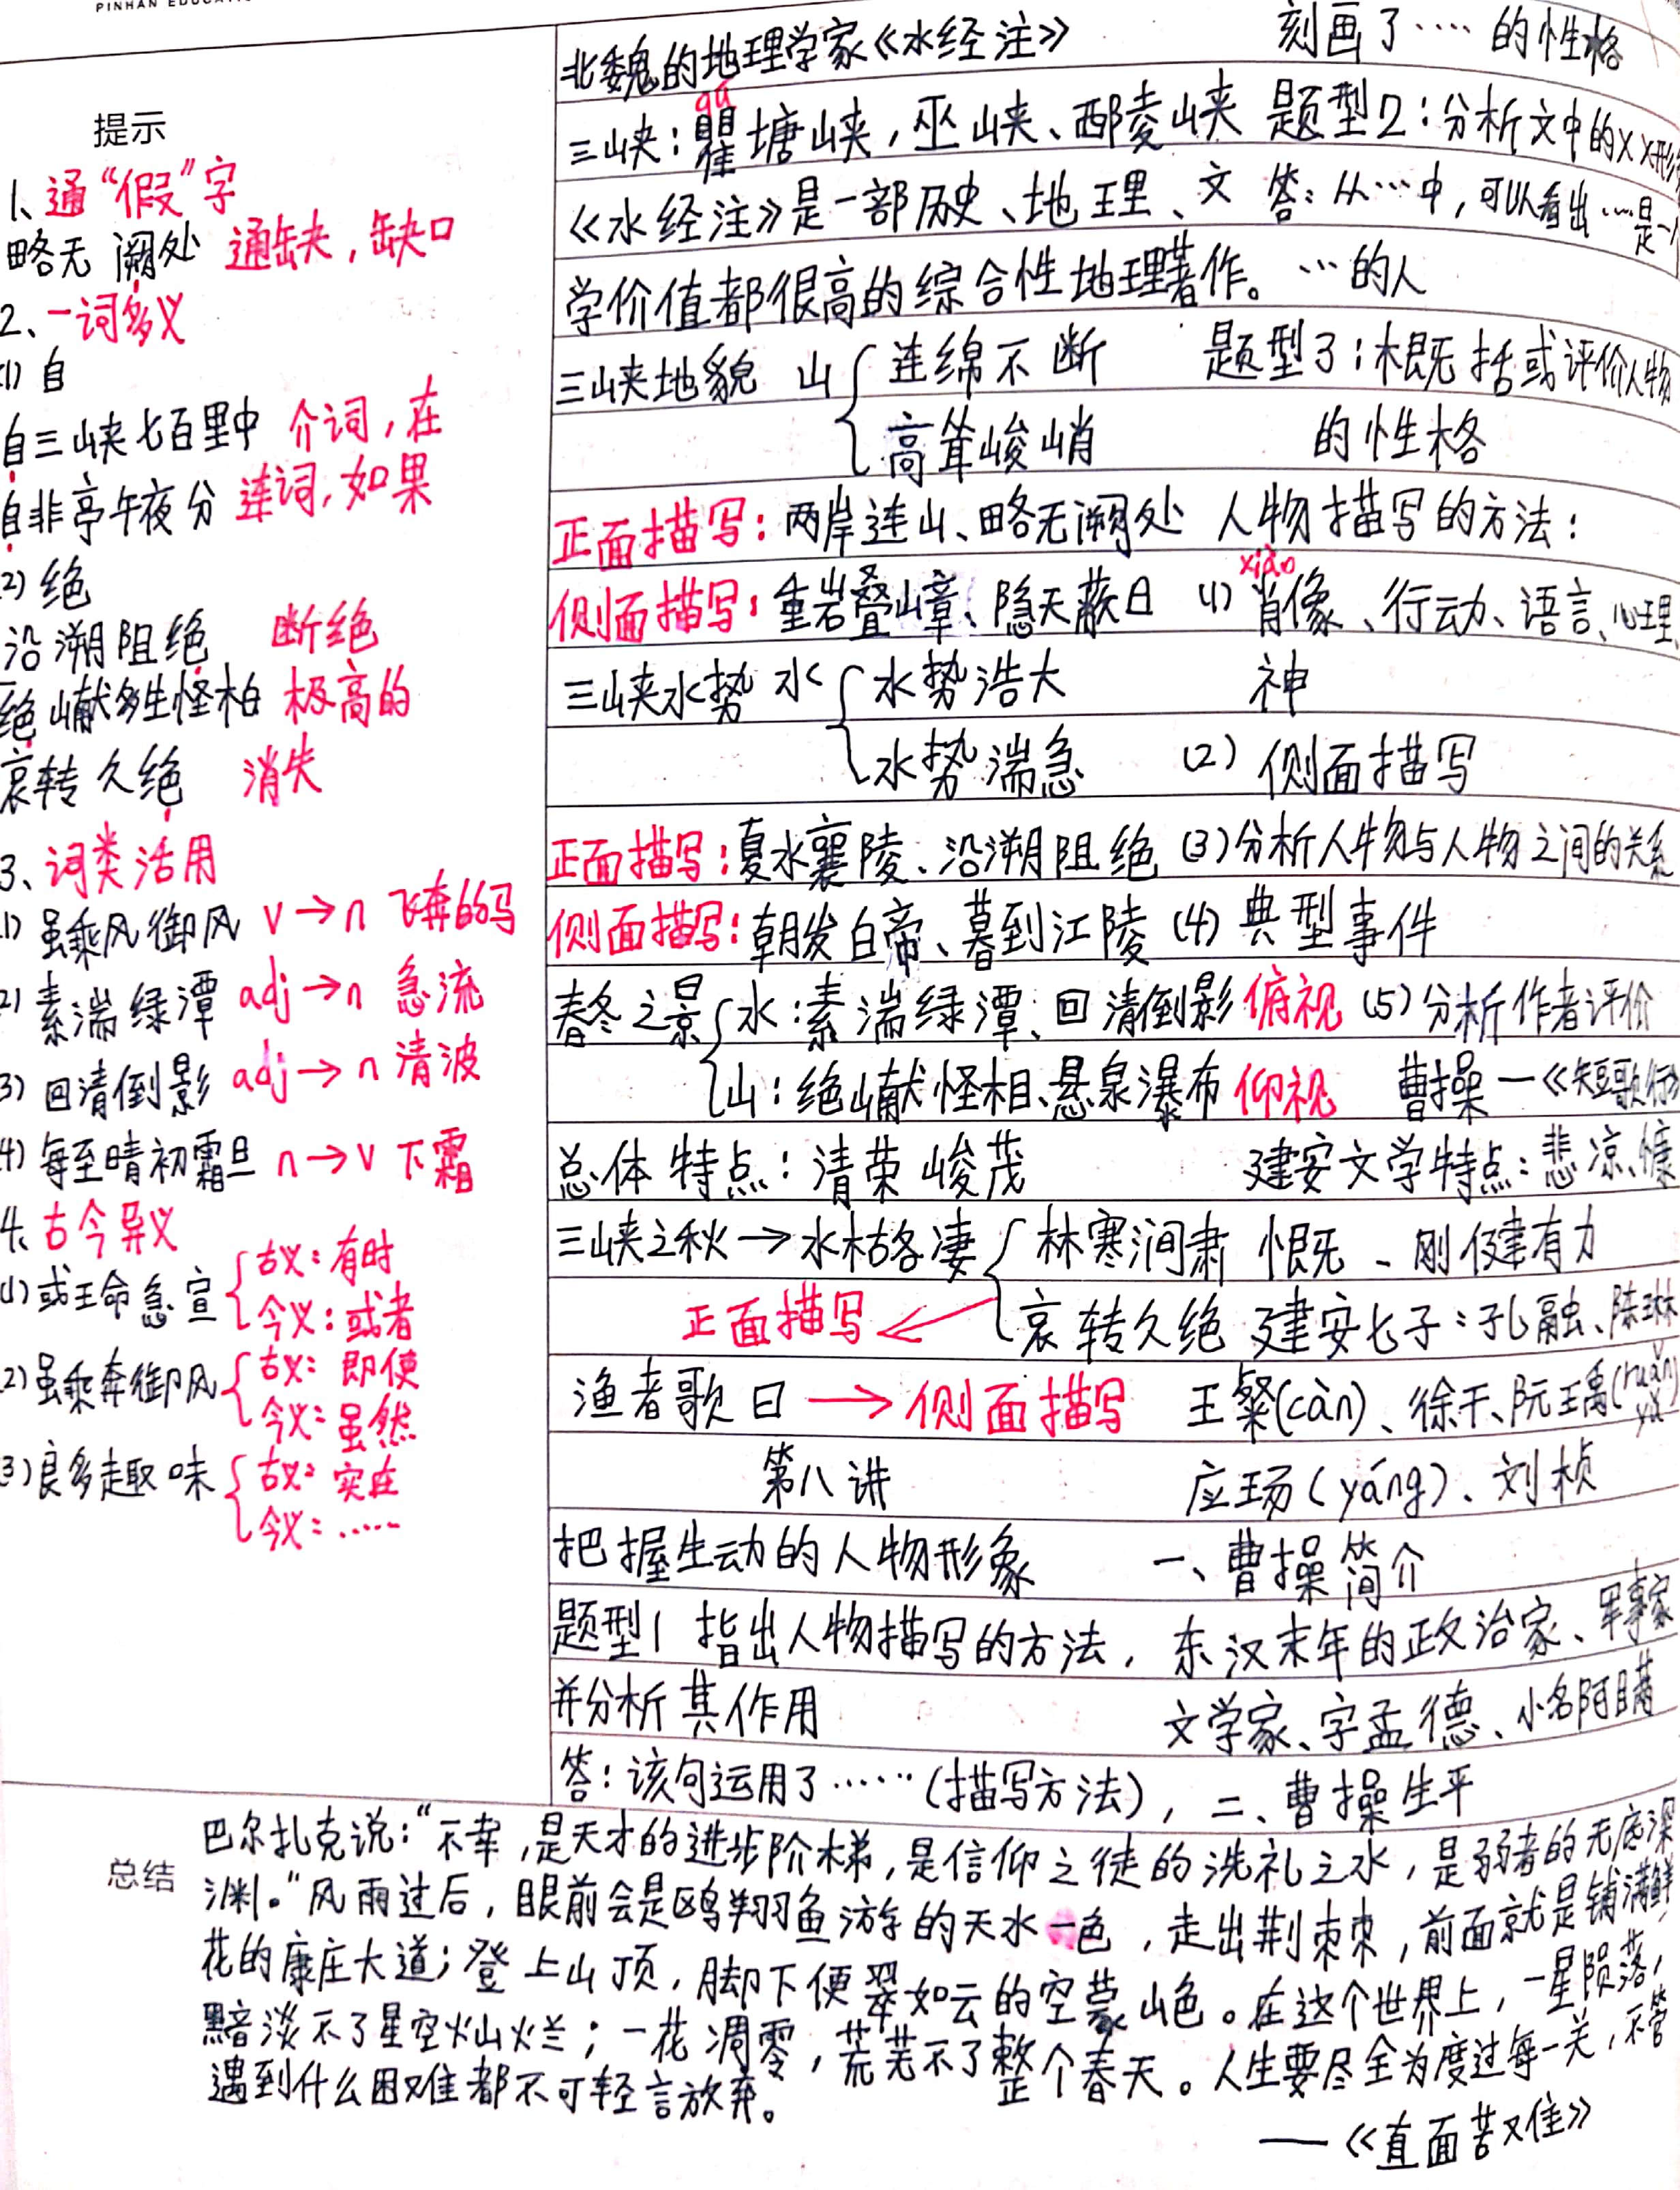 PINHAN EDUCATI
提示
1、通“假”字
略无阙处 通缺,缺口
2、一词多义
(1) 自
自三峡七百里中 介词,在
自非亭午夜分 连词,如果
(2) 绝
沿溯阻绝 断绝
绝巘多生怪柏 极高的
哀转久绝 消失
3、词类活用
(1) 虽乘风御风 v→n 飞奔的马
(2) 素湍绿潭 adj→n 急流
(3) 回清倒影 adj→n 清波
(4) 每至晴初霜旦 n→v 下霜
4、古今异义
(1) 或王命急宣 古义:有时
今义:或者
(2) 虽乘奔御风 古义:即使
今义:虽然
(3) 良多趣味 古义:实在
今义:……
北魏的地理学家《水经注》
qú
三峡:瞿塘峡,巫山峡、西陵峡
《水经注》是一部历史、地理、文
学价值都很高的综合性地理著作。
三峡地貌 山 连绵不断
高耸峻峭
正面描写:两岸连山、略无阙处
侧面描写:重岩叠嶂、隐天蔽日
三峡水势 水 水势浩大
水势湍急
正面描写:夏水襄陵、沿溯阻绝
侧面描写:朝发白帝、暮到江陵
春冬之景 水:素湍绿潭、回清倒影 俯视
山:绝巘怪柏、悬泉瀑布 仰视
总体特点:清荣峻茂
三峡之秋→水枯谷凄 林寒涧肃
正面描写 ← 哀转久绝
渔者歌曰 → 侧面描写
第八讲
把握生动的人物形象
题型1 指出人物描写的方法,
并分析其作用
答:该句运用了……(描写方法),
刻画了……的性格
题型2:分析文中的××形
答:从…中,可以看出…是一个
…的人
题型3:概括或评价人物
的性格
人物描写的方法:
xiào
(1) 肖像、行动、语言、心理、
神
(2) 侧面描写
(3) 分析人物与人物之间的关系
(4) 典型事件
(5) 分析作者评价
曹操—《短歌行》
建安文学特点:悲凉、慷
慨、刚健有力
建安七子:孔融、陈琳
王粲(càn)、徐干、阮瑀(ruǎn yǔ)
应玚(yáng)、刘桢
一、曹操简介
东汉末年的政治家、军事家
文学家、字孟德、小名阿瞒
二、曹操生平
总结
巴尔扎克说:“不幸,是天才的进步阶梯,是信仰之徒的洗礼之水,是弱者的无底深
渊。”风雨过后,眼前会是鸥翔鱼游的天水一色,走出荆棘,前面就是铺满鲜
花的康庄大道;登上山顶,脚下便翠如云的空蒙山色。在这个世界上,一星陨落,
黯淡不了星空灿烂;一花凋零,荒芜不了整个春天。人生要尽全力度过每一关,不管
遇到什么困难都不可轻言放弃。
——《直面苦难》